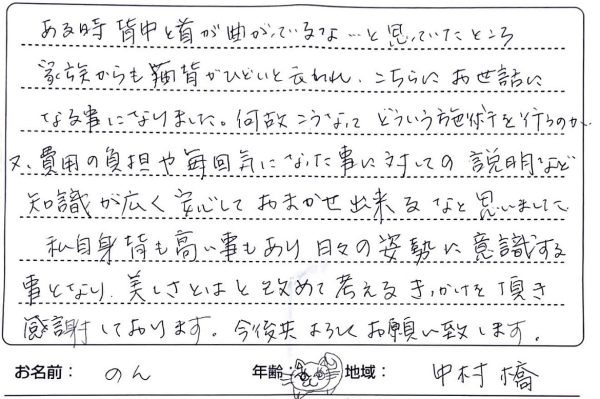 ある時背中と首が曲がっているな…と思っていたところ
家族からも猫背がひどいと云われ、こちらにお世話に
なる事になりました。何故こうなってどういう施術を行うのか、
又、費用の負担や毎回気になった事に対しての説明など
知識が広く安心しておまかせ出来るなと思いました
私自身背も高い事もあり日々の姿勢に意識する
事となり、美しさとはと改めて考えるきっかけを頂き
感謝しております。今後共よろしくお願い致します。
お名前： のん 年齢： 地域： 中村橋